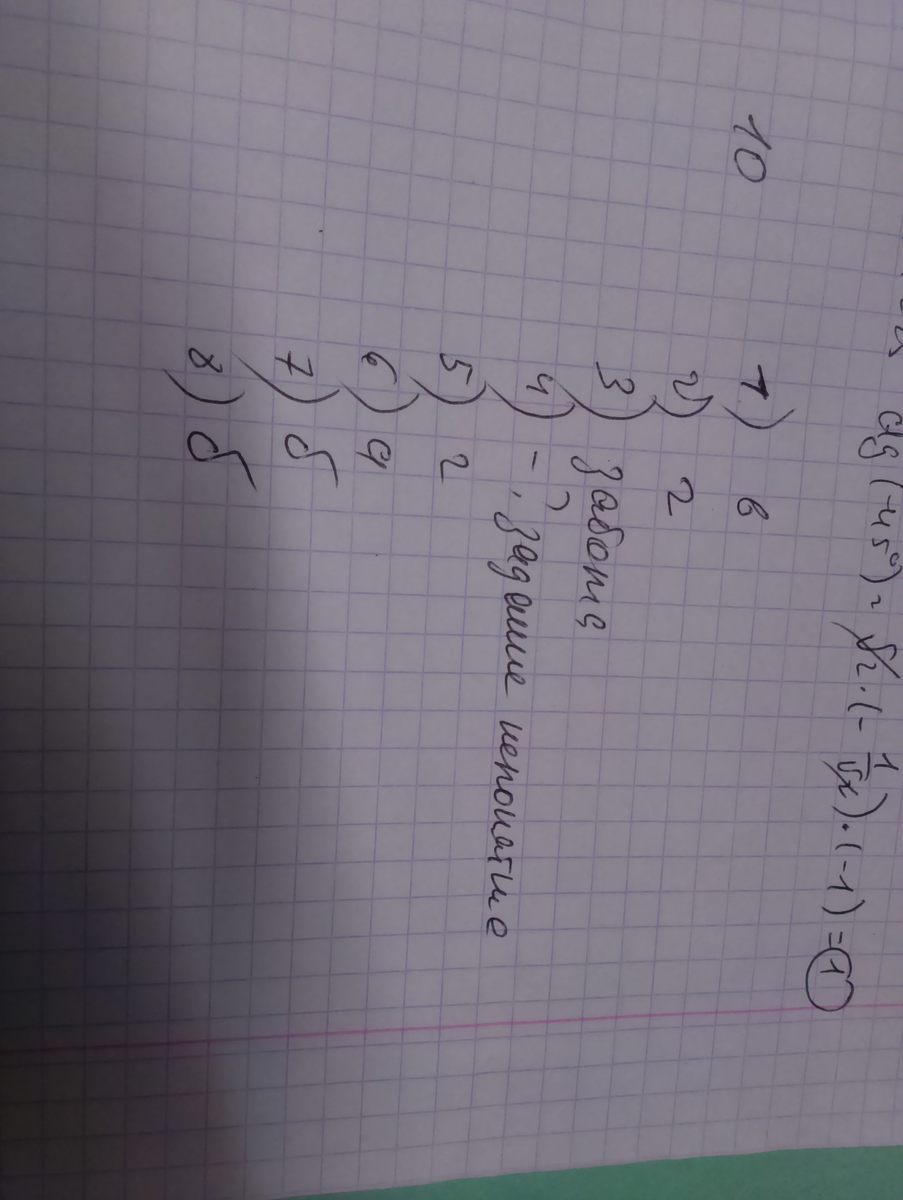 ctg (-45°) = √2 · (- 1/√2) · (-1) = 1
10 1) в
2) г
3) забота
4) -, задание непонятне
5) г
6) а
7) б
8) б